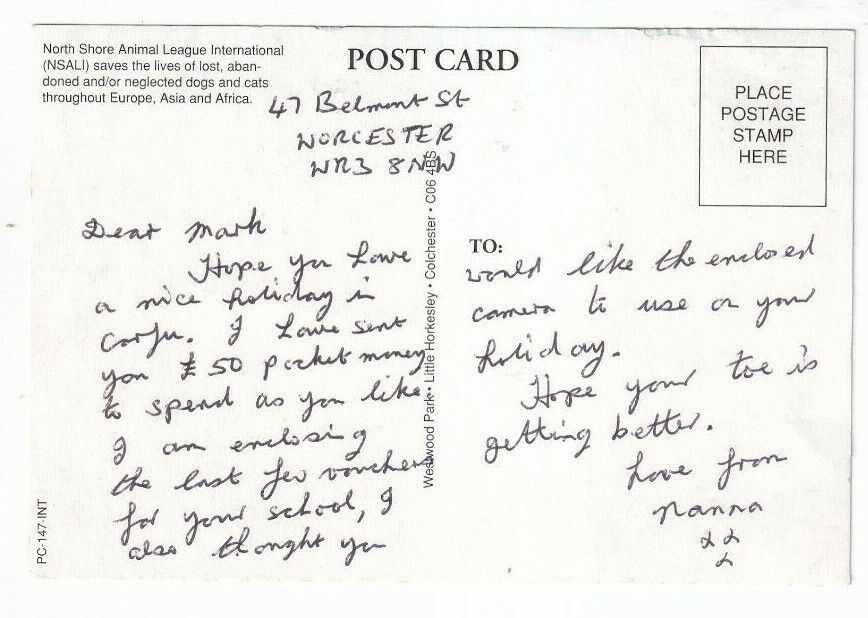 North Shore Animal League International
(NSALI) saves the lives of lost, aban-
doned and/or neglected dogs and cats
throughout Europe, Asia and Africa.
POST CARD
PLACE
POSTAGE
STAMP
HERE
47 Belmont St
WORCESTER
WR3 8NW
Dear Mark
Hope you have
a nice holiday in
Corfu. I have sent
you £50 pocket money
to spend as you like.
I am enclosing
the last few vouchers
for your school, I
also thought you
Westwood Park • Little Horkesley • Colchester • C06 4BS
TO:
would like the enclosed
camera to use on your
holiday.
Hope your toe is
getting better.
Love from
Nanna
xx
x
PC-147-INT